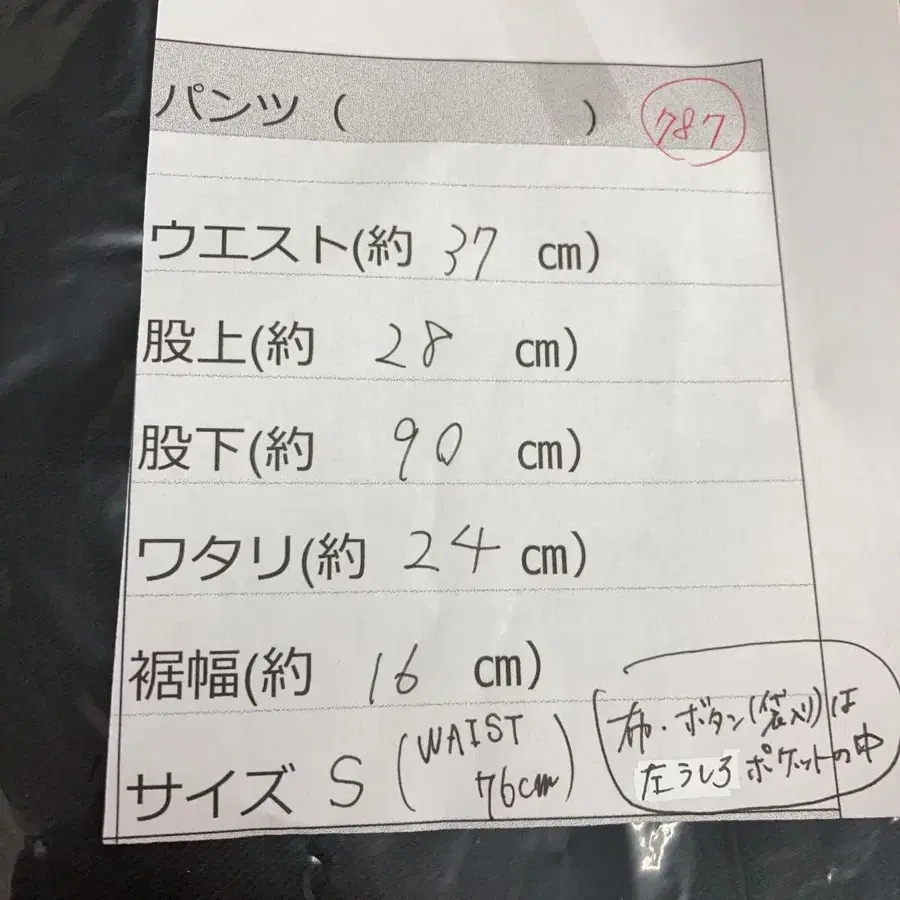 パンツ ( ) 787
ウエスト(約 37 cm)
股上(約 28 cm)
股下(約 90 cm)
ワタリ(約 24 cm)
裾幅(約 16 cm)
サイズ S (WAIST 76cm)
布・ボタン(袋入り)は
左うしろポケットの中